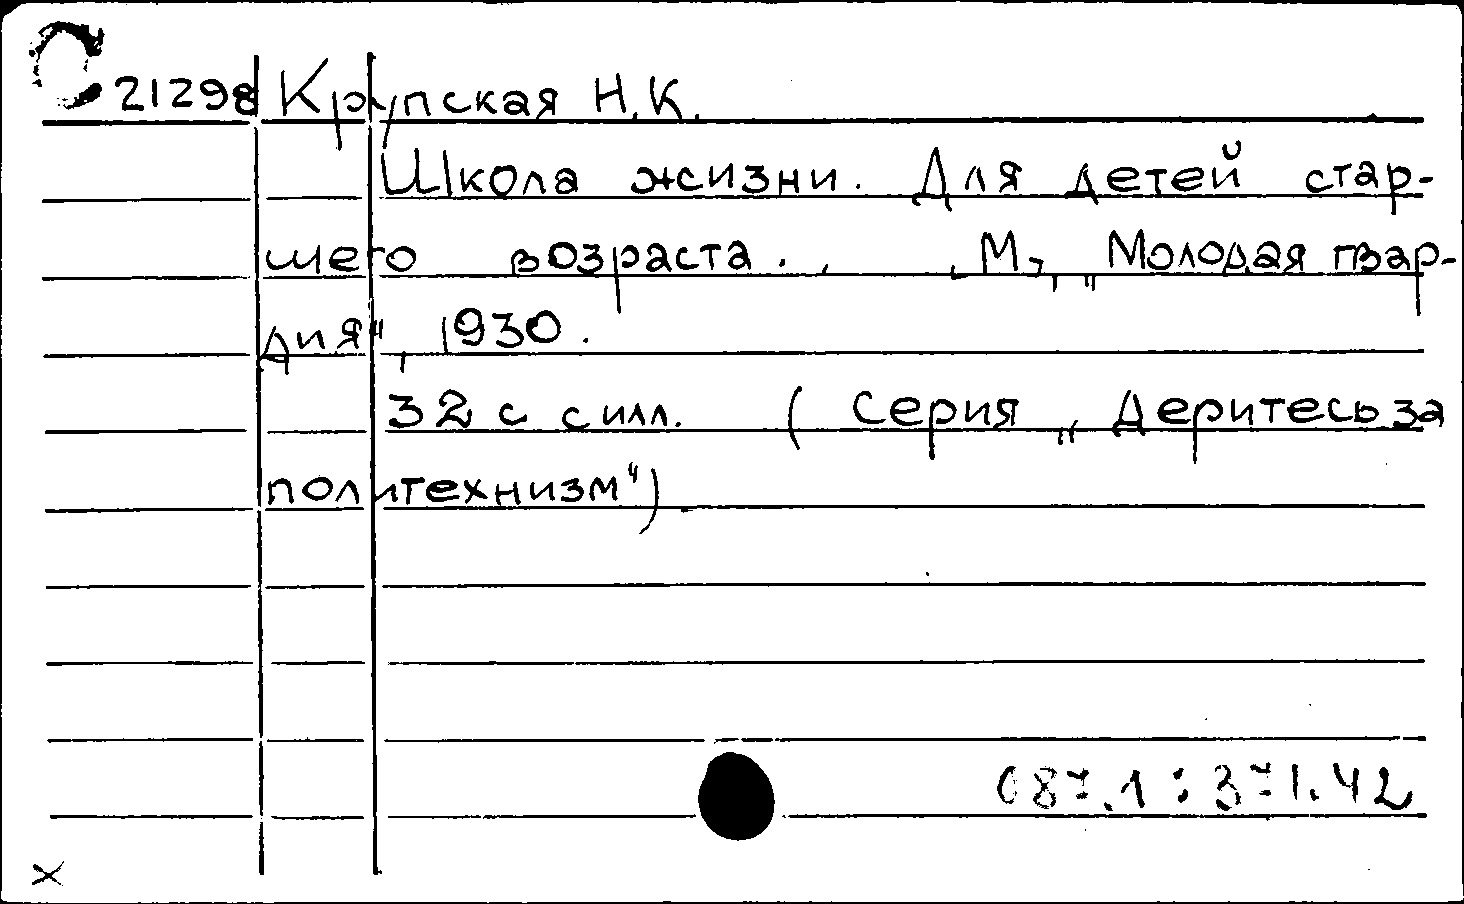 С 21298 Крупская Н.К.
Школа жизни. Для детей стар-
шего возраста . . . М., „Молодая гвар-
дия“, 1930.
32 с с илл. (Серия „Деритесь за
политехнизм“)
087.1 : 371.42
х